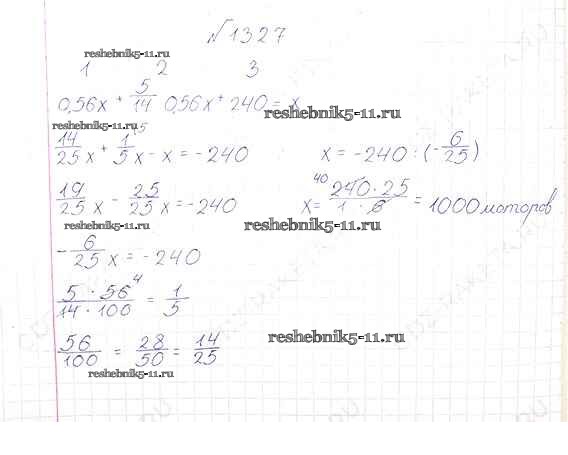 №1327
reshebnik5-11.ru
1 2 3
0,56x + 5/14 0,56x + 240 = x
reshebnik5-11.ru
reshebnik5-11.ru
14/25 x + 1/5 x - x = -240
x = -240 : (-6/25)
19/25 x - 25/25 x = -240
x = 240 · 25 / 1 · 6 = 1000 моторов
40
reshebnik5-11.ru
reshebnik5-11.ru
-6/25 x = -240
5 · 56 4 / 14 · 100 = 1/5
56/100 = 28/50 = 14/25
reshebnik5-11.ru
reshebnik5-11.ru